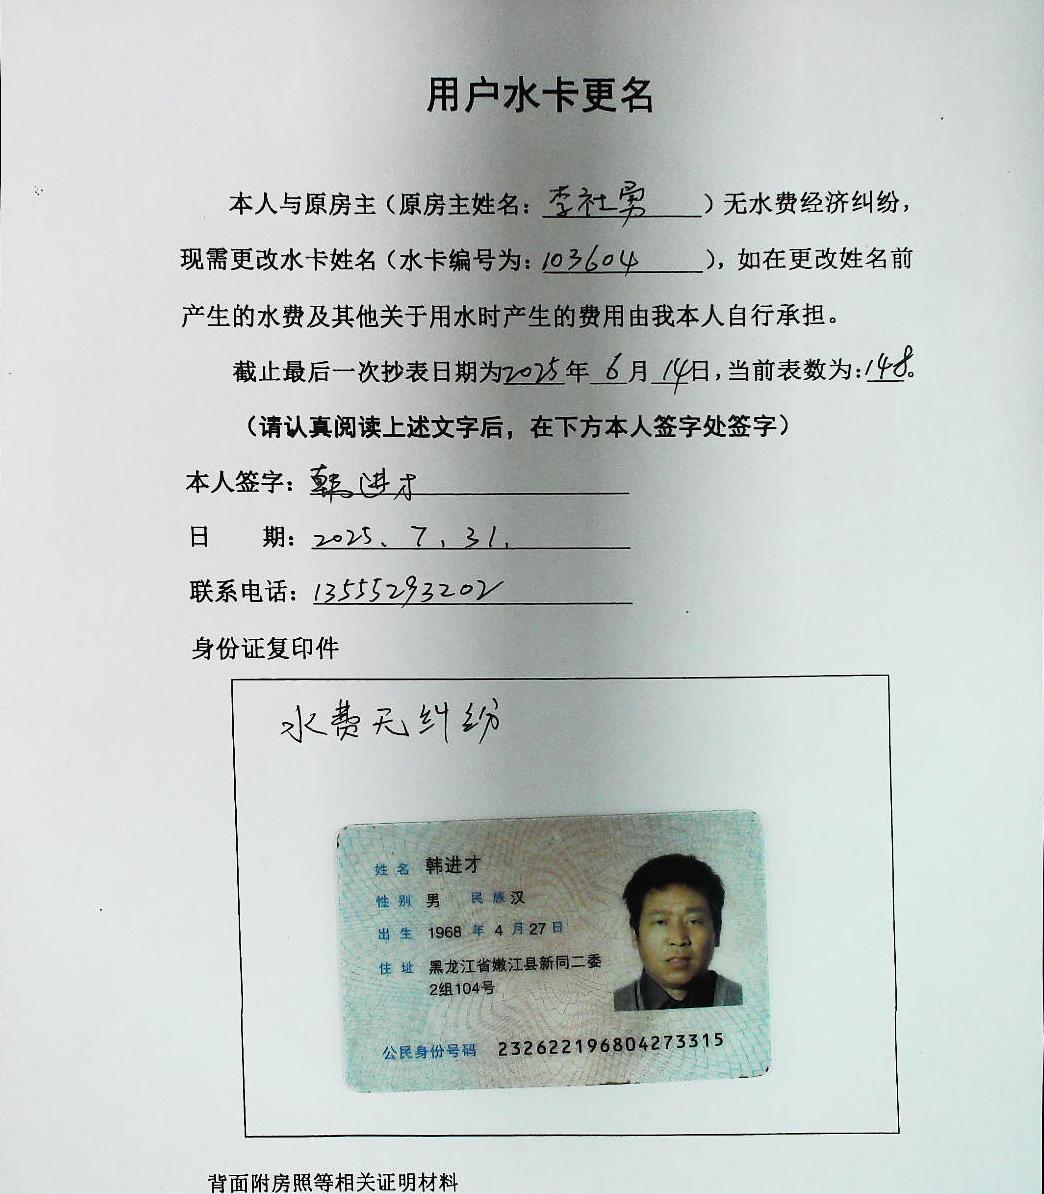 用户水卡更名
本人与原房主（原房主姓名：李社勇）无水费经济纠纷，
现需更改水卡姓名（水卡编号为：103604），如在更改姓名前
产生的水费及其他关于用水时产生的费用由我本人自行承担。
截止最后一次抄表日期为2025年6月14日，当前表数为：148。
（请认真阅读上述文字后，在下方本人签字处签字）
本人签字：韩进才
日 期：2025、7、31.
联系电话：13555293202
身份证复印件
水费无纠纷
姓名 韩进才
性别 男 民族 汉
出生 1968 年 4 月 27 日
住址 黑龙江省嫩江县新同二委
2组104号
公民身份号码 232622196804273315
背面附房照等相关证明材料